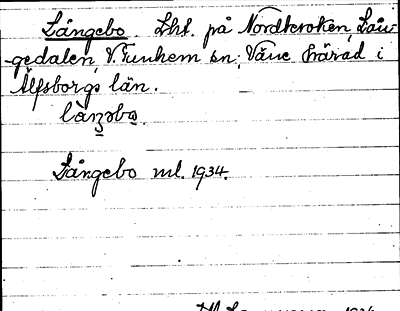 Långebo Lht. på Nordkroken, Lån-
gedalen, V. Tunhem sn. Väne härad i
Älfsborgs län.
Långebo ml. 1934.